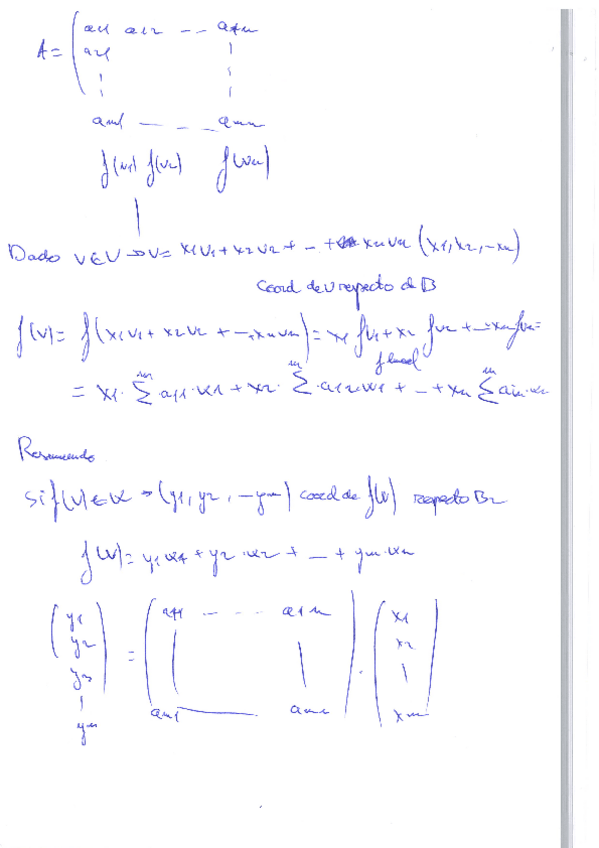 A = ( a11 a12 -- a1n
a21 | |
| |
am1 — - - amn )
f(v1) f(v2) f(vn)
Dado v∈V → v = x1v1 + x2v2 + - + xnvn (x1, x2, -xn)
Coord de v respecto de B
f(v) = f(x1v1 + x2v2 + -, xnvn) = x1 fv1 + x2 fv2 + - xn fvn =
f lineal
= x1 · Σ ai1 · wi + x2 · Σ · ai2 · wi + - + xn Σ ain · wi
Resumiendo
Si f(v) ∈ W → (y1, y2, - ym) coord de f(v) respecto B2
f(v) = y1 · w1 + y2 · w2 + - + ym · wm
( y1 y2 y3 | ym ) = ( a11 - - - a1n | | am1 — amn ) · ( x1 x2 | xn )